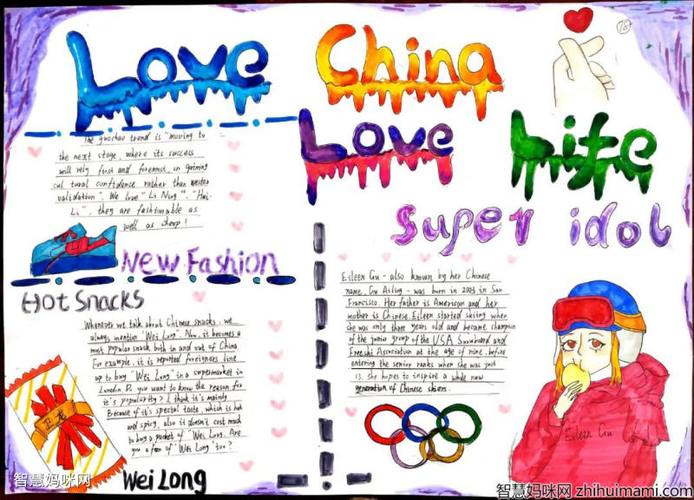 Love China
Love Life
187
The guochao trend is "moving to
the next stage, where its success
will rely first and foremost on gaining
cultural confidence rather than wester
validation". We love "Li Ning", "Hui
Li", they are fashionable as
well as cheap!
New Fashion
Hot Snacks
Whenever we talk about Chinese snacks, we
always mention "Wei Long". Now, it becomes a
most popular snack both in and out of China.
For example, it is reported foreigners line
up to buy "Wei Long" in a supermarket in
London. Do you want to know the reason for
it's popularity? I think it's mainly
Because of it's special taste, which is hot
and spicy, also it doesn't cost much
to buy a packet of "Wei Long". Are
you a fan of "Wei Long" too?
卫龙
Wei Long
super idol
Eileen Gu - also known by her Chinese
name, Gu Ailing - was born in 2003 in San
Francisco. Her father is American and her
mother is Chinese. Eileen started skiing when
she was only three years old and became champion
of the junior group of the USA Snowboard and
Freeski Association at the age of nine, before
entering the senior ranks when she was just
15. She hopes to inspire a whole new
generation of Chinese skiers.
Eileen Gu
智慧妈咪网
智慧妈咪网 zhihuimami.com